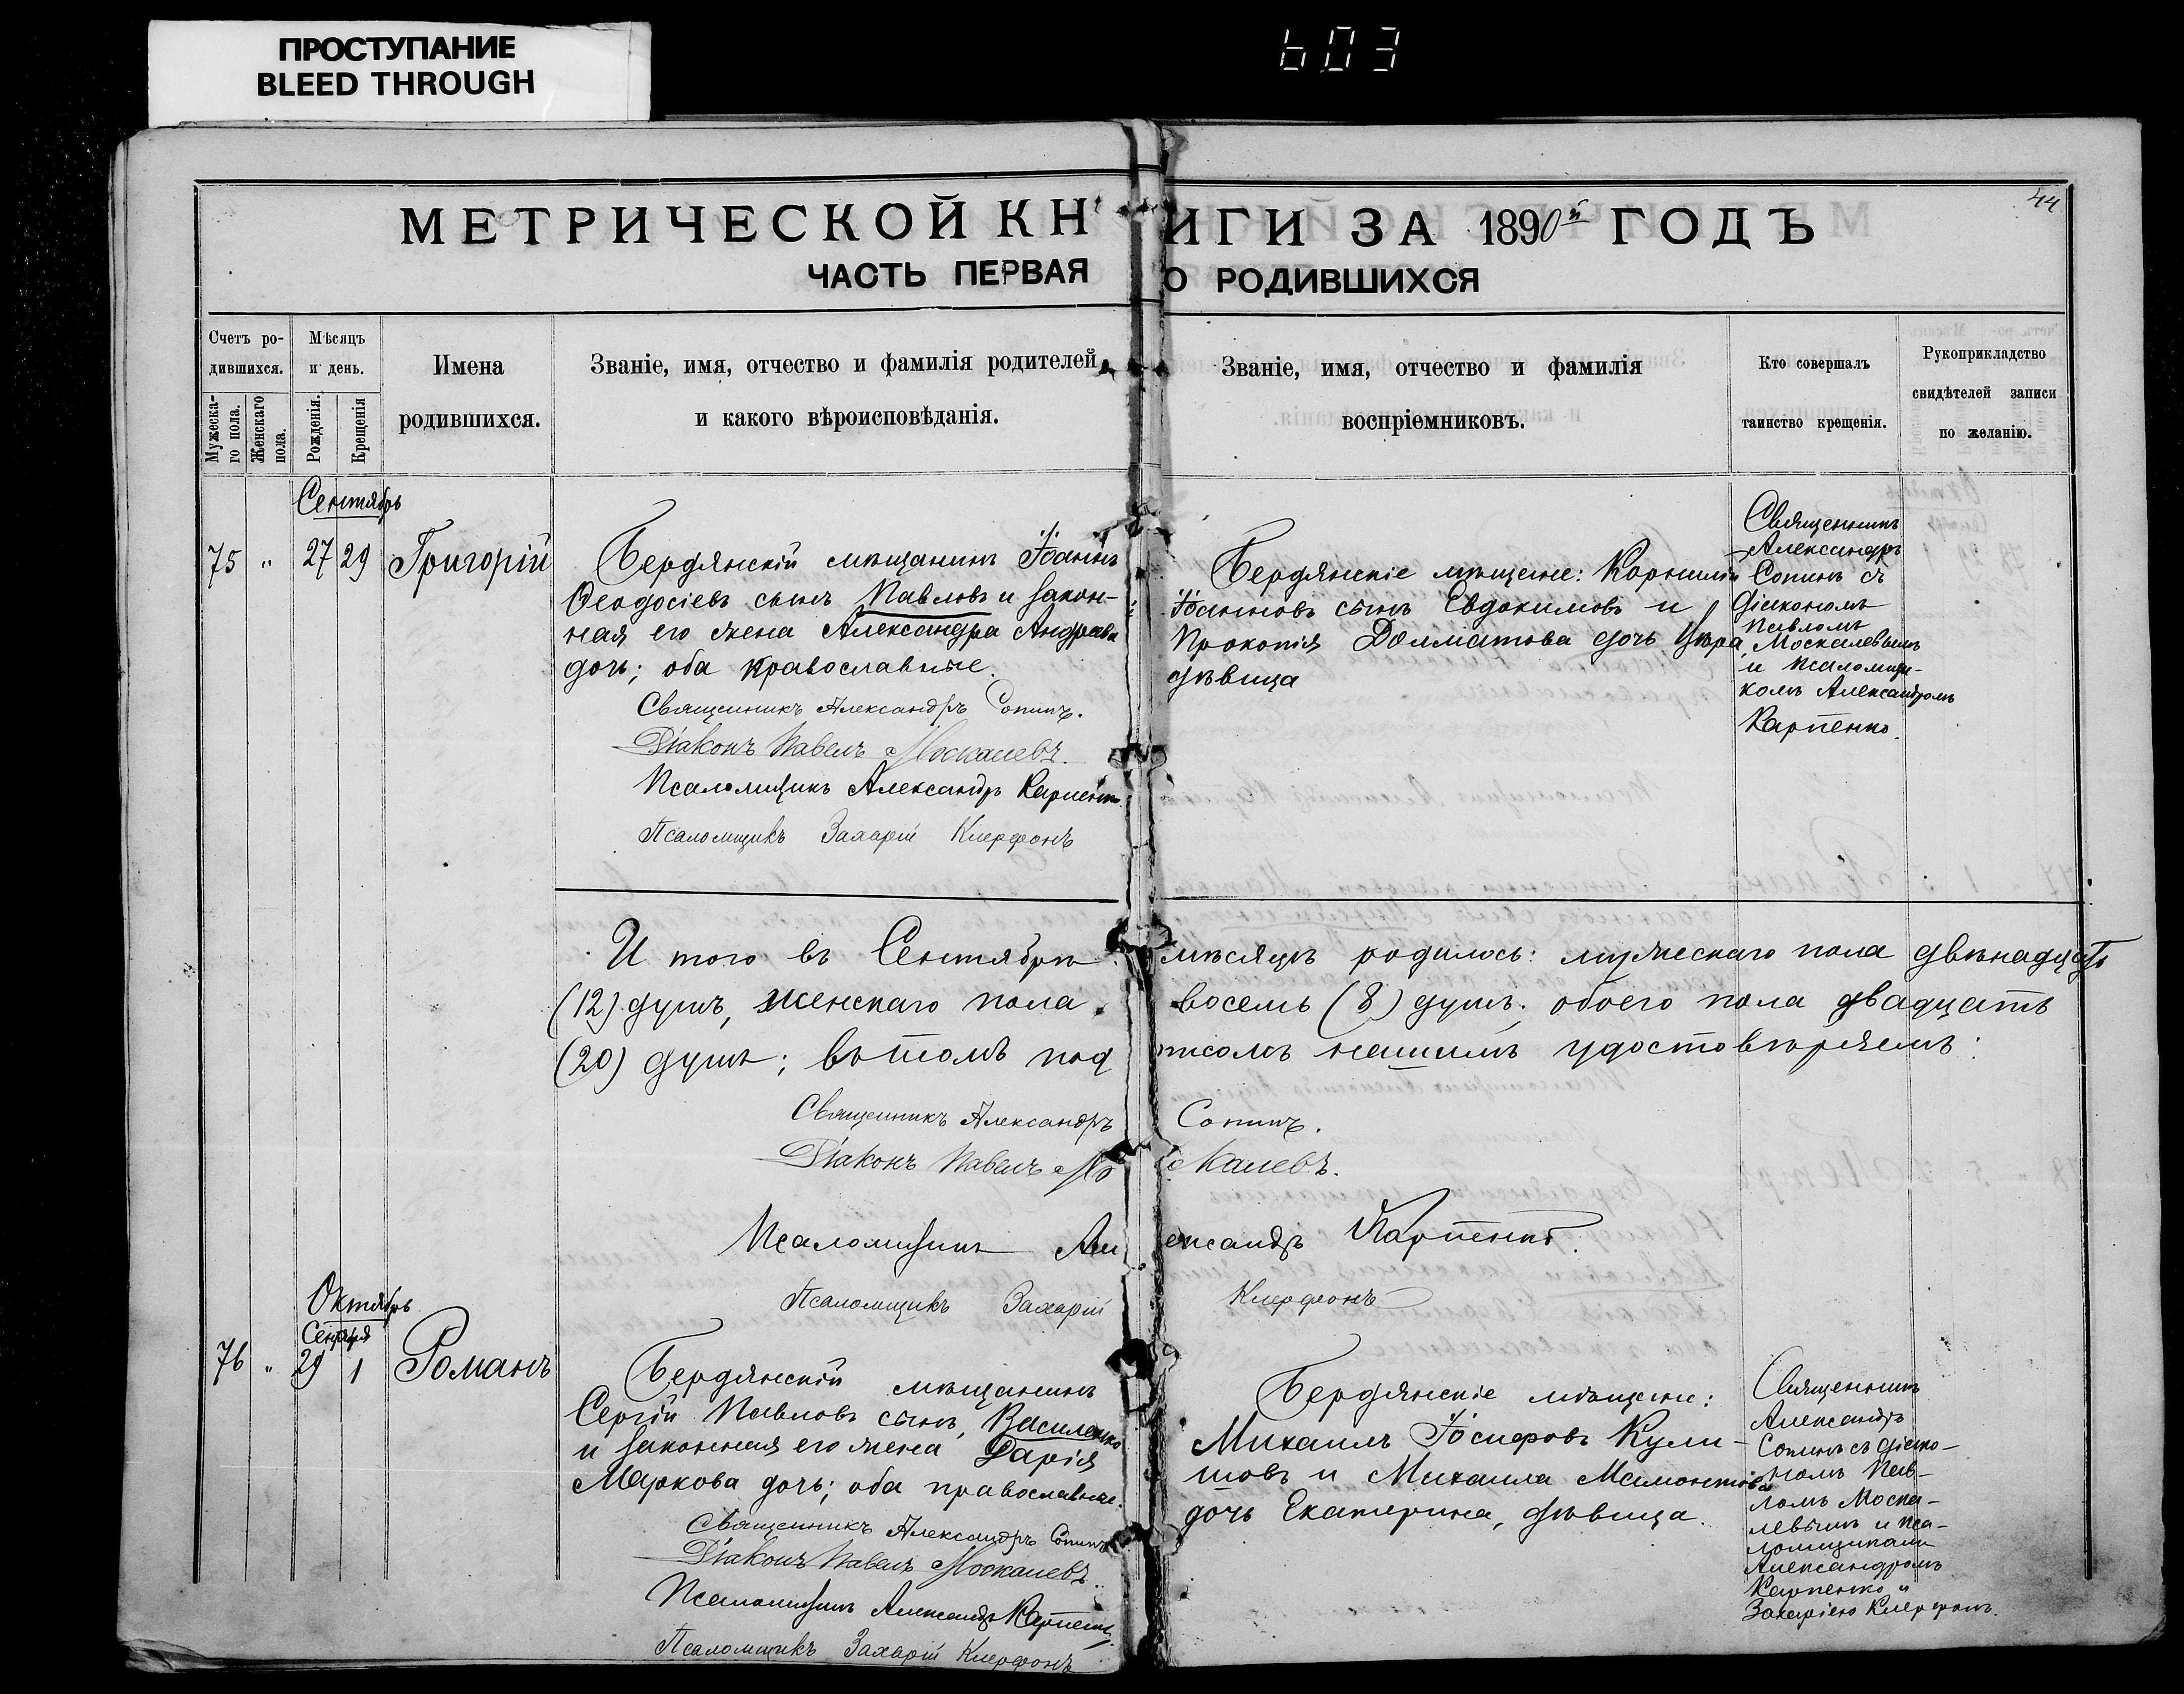 ПРОСТУПАНИЕ
BLEED THROUGH
603
44
МЕТРИЧЕСКОЙ КНИГИ ЗА 1890й ГОДЪ
ЧАСТЬ ПЕРВАЯ О РОДИВШИХСЯ
Счетъ ро-
дившихся.
Мужеска-
го пола.
Женскаго
пола.
Мѣсяцъ
и день.
Рожденія.
Крещенія
Имена
родившихся.
Званіе, имя, отчество и фамилія родителей
и какого вѣроисповѣданія.
Званіе, имя, отчество и фамилія
воспріемниковъ.
Кто совершалъ
таинство крещенія.
Рукоприкладство
свидѣтелей записи
по желанію.
Сентябрь
75 " 27 29 Григорій
Бердянскій мѣщанинъ Іоаннъ
Ѳеодосіевъ сынъ Павловъ и закон-
ная его жена Александра Андреева
дочь; оба православные.
Священникъ Александръ Сопинъ.
Діаконъ Павелъ Москалевъ.
Псаломщикъ Александръ Карпенко
Псаломщикъ Захарій Клерфонъ
Бердянскіе мѣщане: Корнилій
Іоанновъ сынъ Евдокимовъ и
Прокопія Долматова дочь
дѣвица
Священникъ
Александръ
Сопинъ съ
діакономъ
Павломъ
Москалевымъ
и псаломщи-
комъ Александромъ
Карпенко.
И того въ Сентябрѣ мѣсяцѣ родилось: мужескаго пола двѣнадцать
(12) душъ, женскаго пола восемь (8) душъ; обоего пола двадцать
(20) душъ; въ томъ подписомъ нашимъ удостовѣряемъ:
Священникъ Александръ Сопинъ.
Діаконъ Павелъ Москалевъ.
Псаломщикъ Александръ Карпенко.
Псаломщикъ Захарій Клерфонъ
Октябрь
Сентября
76 " 29 1 Романъ
Бердянскій мѣщанинъ
Сергій Павловъ сынъ Василенко
и законная его жена Дарія
Маркова дочь; оба православные.
Священникъ Александръ Сопинъ
Діаконъ Павелъ Москалевъ.
Псаломщикъ Александръ Карпенко
Псаломщикъ Захарій Клерфонъ
Бердянскіе мѣщане:
Михаилъ Іосифовъ Кули-
шовъ и Михаила Мамонтова
дочь Екатерина, дѣвица.
Священникъ
Александръ
Сопинъ съ діако-
номъ Пав-
ломъ Моска-
левымъ и пса-
ломщиками
Александромъ
Карпенко и
Захаріею Клерфонъ.